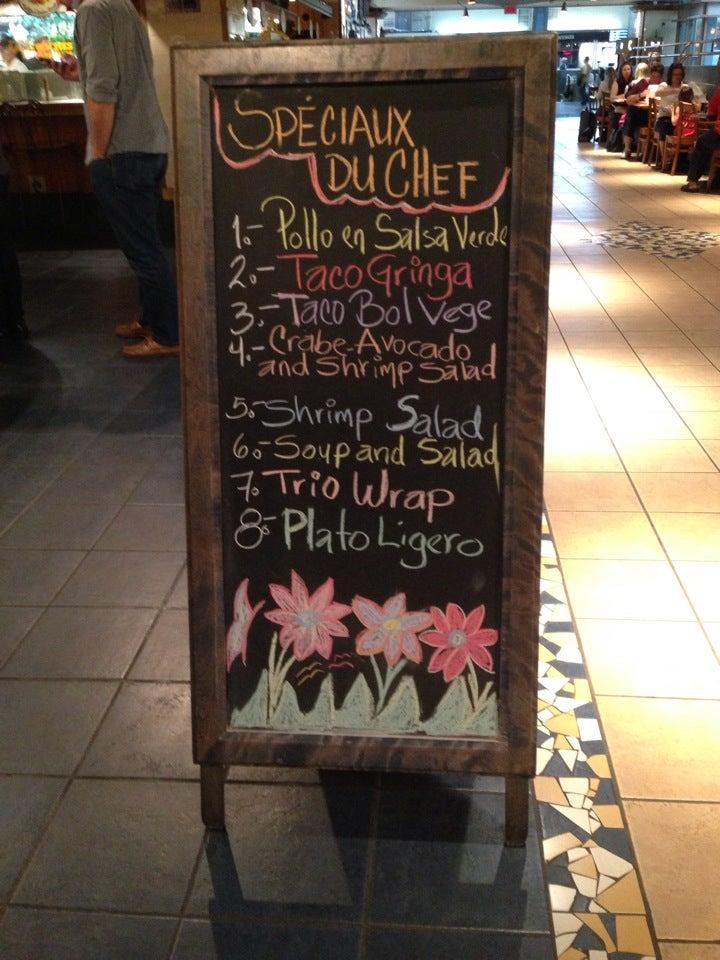 SPÉCIAUX
DU CHEF
1.- Pollo en Salsa Verde
2.- Taco Gringa
3.- Taco Bol Vege
4.- Crabe-Avocado
and Shrimp Salad
5.- Shrimp Salad
6.- Soup and Salad
7. Trio Wrap
8- Plato Ligero